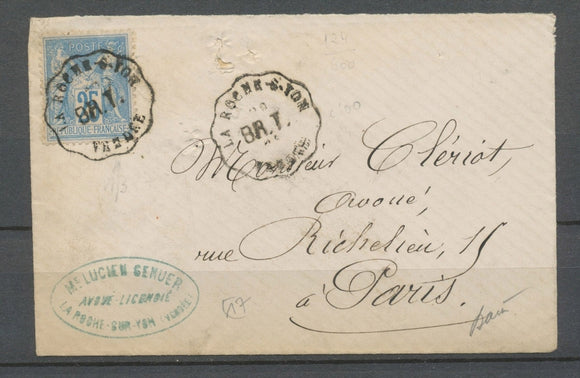 POSTES
25
RÉPUBLIQUE FRANÇAISE
LA ROCHE-S-YON
BR.T.
VENDÉE
LA ROCHE-S-YON
BR.T.
VENDÉE
124
600
Monsieur Clériot,
avoué,
rue Richelieu, 15
à Paris.
Me LUCIEN GENUER
AVOUÉ-LICENCIÉ
LA ROCHE-SUR-YON (VENDÉE)
17